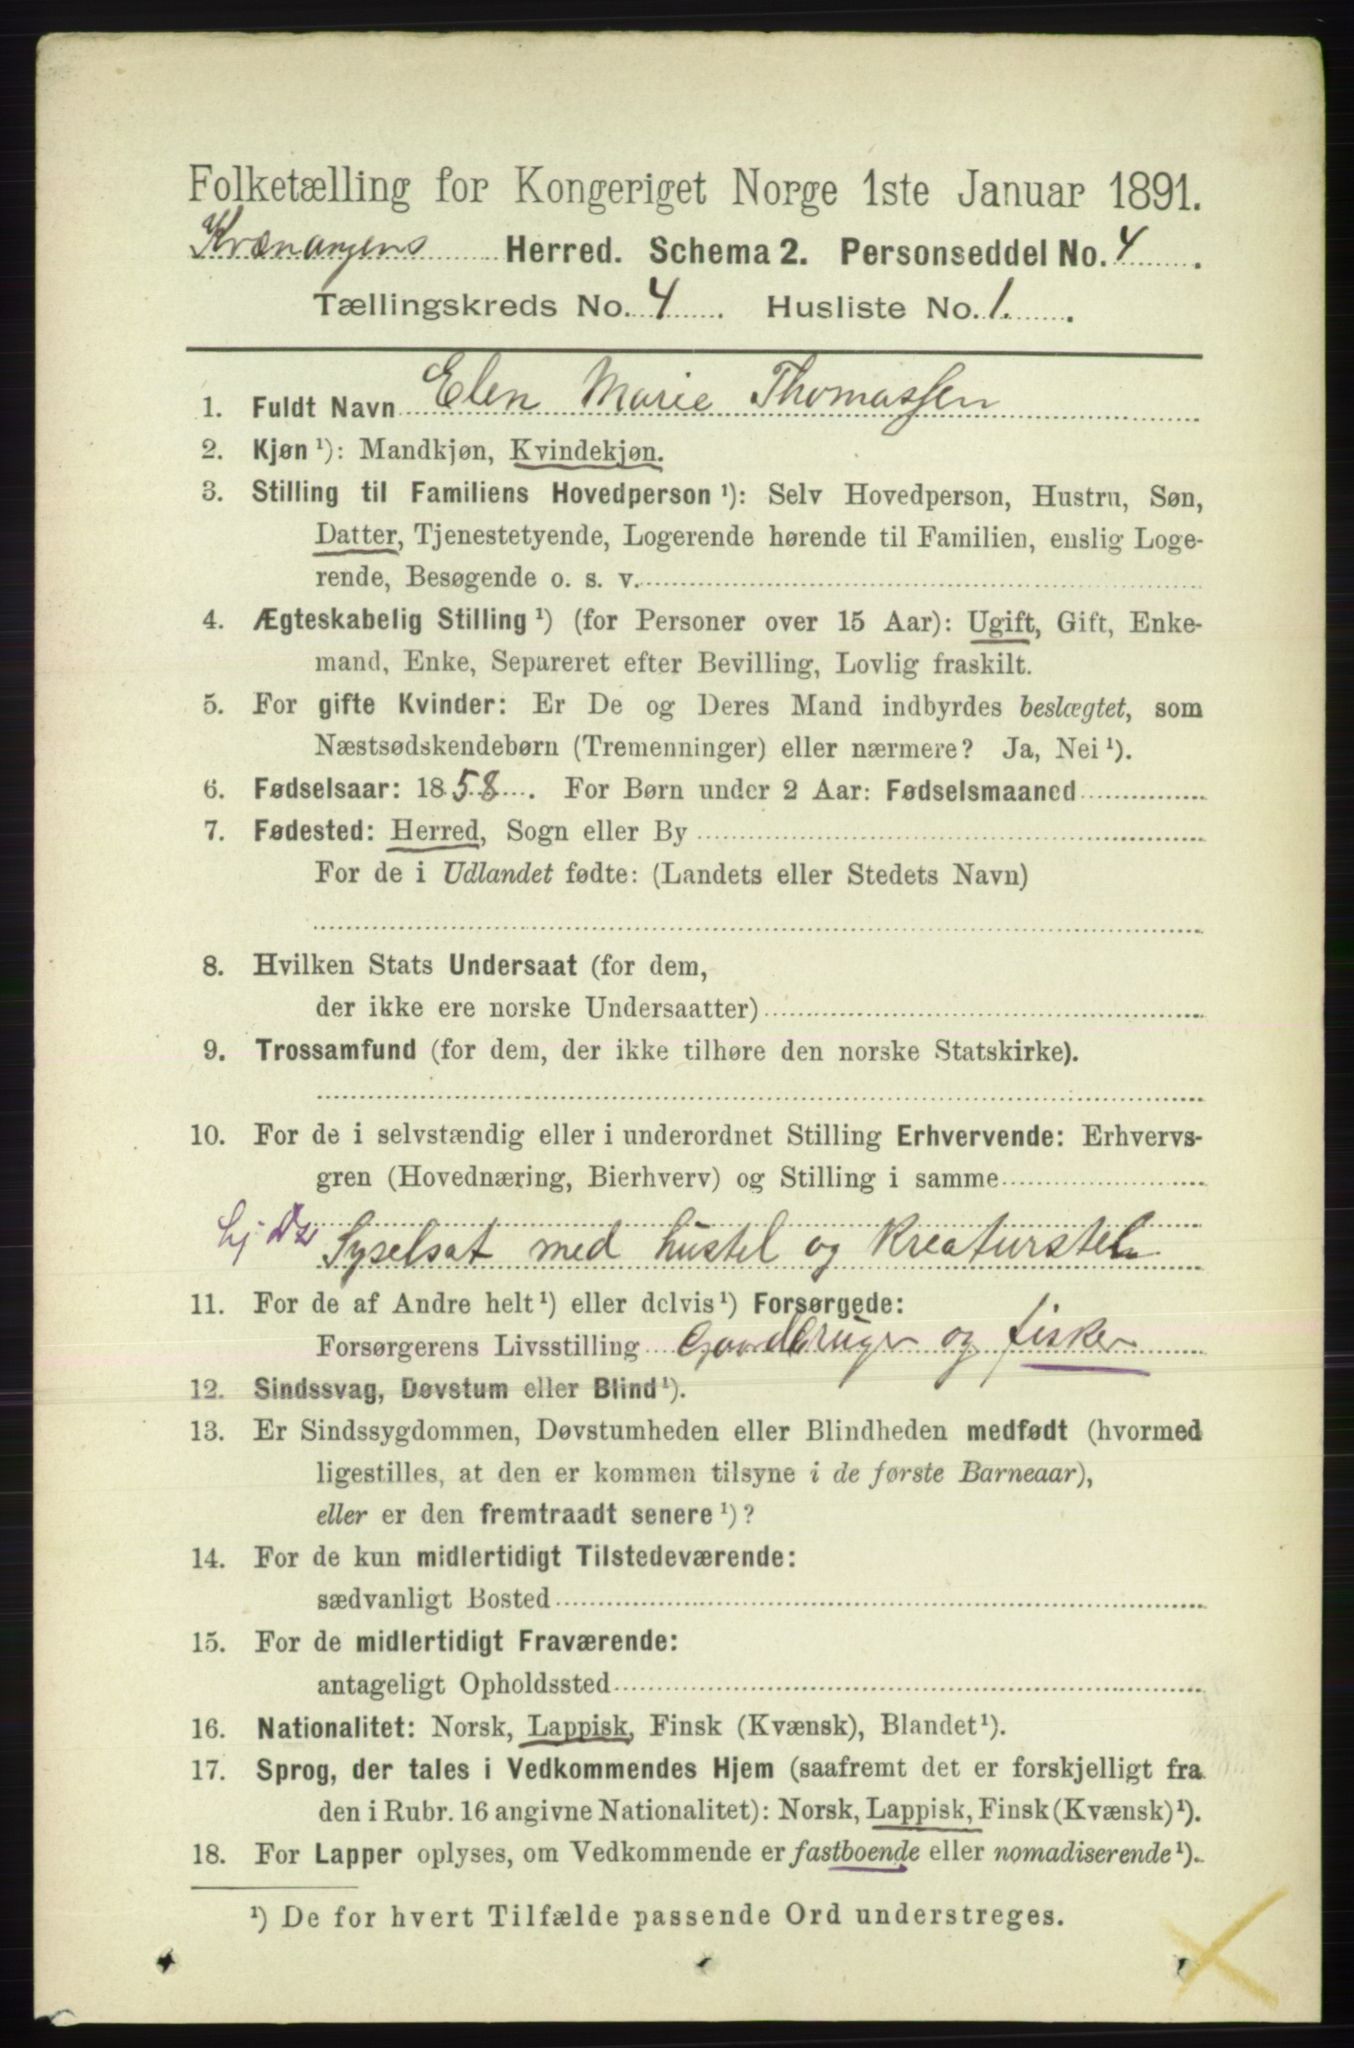 Folketælling for Kongeriget Norge 1ste Januar 1891.
Kvænangens Herred. Schema 2. Personseddel No. 4
Tællingskreds No. 4 Husliste No. 1.
1. Fuldt Navn Elen Marie Thomassen
2. Kjøn ¹): Mandkjøn, Kvindekjøn.
3. Stilling til Familiens Hovedperson ¹): Selv Hovedperson, Hustru, Søn,
Datter, Tjenestetyende, Logerende hørende til Familien, enslig Loge-
rende, Besøgende o. s. v.
4. Ægteskabelig Stilling ¹) (for Personer over 15 Aar): Ugift, Gift, Enke-
mand, Enke, Separeret efter Bevilling, Lovlig fraskilt.
5. For gifte Kvinder: Er De og Deres Mand indbyrdes beslægtet, som
Næstsødskendebørn (Tremenninger) eller nærmere? Ja, Nei ¹).
6. Fødselsaar: 1858. For Børn under 2 Aar: Fødselsmaaned
7. Fødested: Herred, Sogn eller By
For de i Udlandet fødte: (Landets eller Stedets Navn)
8. Hvilken Stats Undersaat (for dem,
der ikke ere norske Undersaatter)
9. Trossamfund (for dem, der ikke tilhøre den norske Statskirke).
10. For de i selvstændig eller i underordnet Stilling Erhvervende: Erhvervs-
gren (Hovednæring, Bierhverv) og Stilling i samme
Syselsat med hustel og Kreaturstel
11. For de af Andre helt ¹) eller delvis ¹) Forsørgede:
Forsørgerens Livsstilling Gaardbruger og fisker
12. Sindssvag, Døvstum eller Blind ¹).
13. Er Sindssygdommen, Døvstumheden eller Blindheden medfødt (hvormed
ligestilles, at den er kommen tilsyne i de første Barneaar),
eller er den fremtraadt senere ¹)?
14. For de kun midlertidigt Tilstedeværende:
sædvanligt Bosted
15. For de midlertidigt Fraværende:
antageligt Opholdssted
16. Nationalitet: Norsk, Lappisk, Finsk (Kvænsk), Blandet ¹).
17. Sprog, der tales i Vedkommendes Hjem (saafremt det er forskjelligt fra
den i Rubr. 16 angivne Nationalitet): Norsk, Lappisk, Finsk (Kvænsk) ¹).
18. For Lapper oplyses, om Vedkommende er fastboende eller nomadiserende ¹).
¹) De for hvert Tilfælde passende Ord understreges.